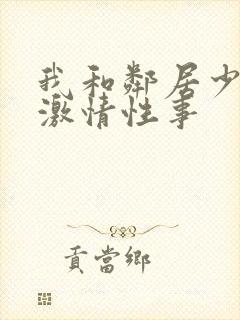 我和鄰居少
激情性事
貢當鄉